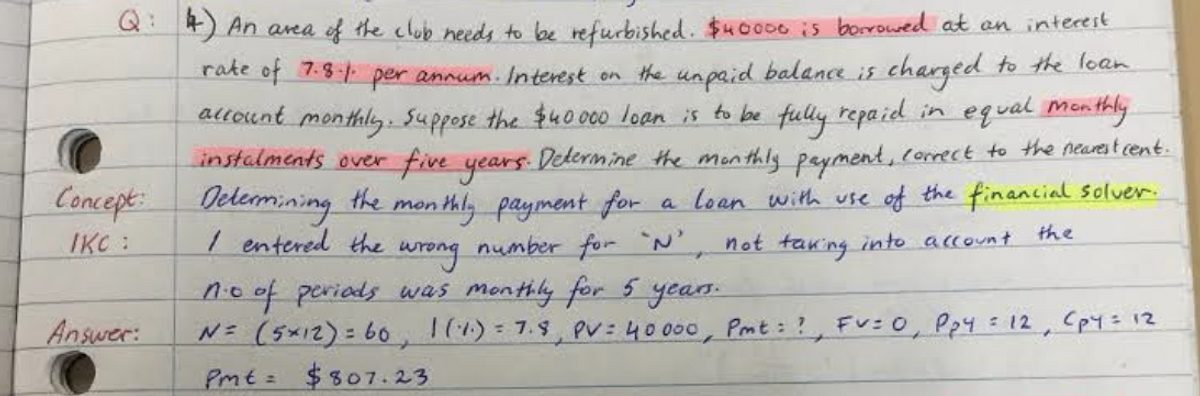 Q: 4) An area of the club needs to be refurbished. $40000 is borrowed at an interest
rate of 7.8% per annum. Interest on the unpaid balance is charged to the loan
account monthly. Suppose the $40 000 loan is to be fully repaid in equal monthly
instalments over five years. Determine the monthly payment, correct to the nearest cent.
Concept: Determining the monthly payment for a loan with use of the financial solver.
IKC: I entered the wrong number for 'N', not taking into account the
n.o of periods was monthly for 5 years.
Answer: N= (5×12) = 60, I(%) = 7.8, PV= 40 000, Pmt = ?, FV= 0, PpY = 12, CpY = 12
Pmt = $807.23